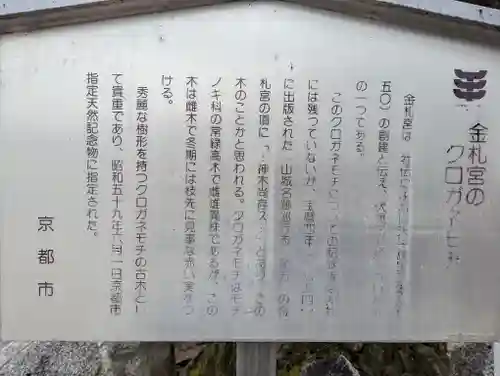 金札宮の
クロガネモチ
金札宮は、社伝に
五〇)の創建と伝え、
の一つである。
このクロガネモチについての記
には残っていないが、宝暦四年
に出版された「山城名跡巡行志
札宮の項に「…神木尚存ス…」と
木のことかと思われる。クロガネモチはモチ
ノキ科の常緑高木で雌雄異株であるが、この
木は雌木で冬期には枝先に見事な赤い実をつ
ける。
秀麗な樹形を持つクロガネモチの古木とし
て貴重であり、昭和五十九年六月一日京都市
指定天然記念物に指定された。
京都市